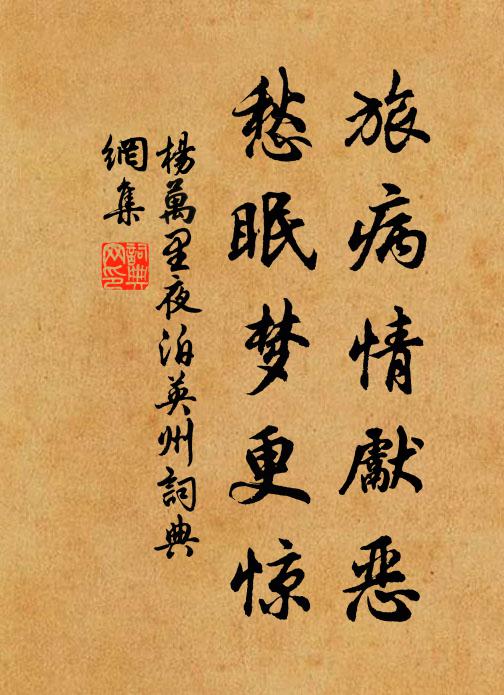 旅病情獻恶
愁眠梦更惊
楊萬里夜泊英州詞典
網集
詞典
网印